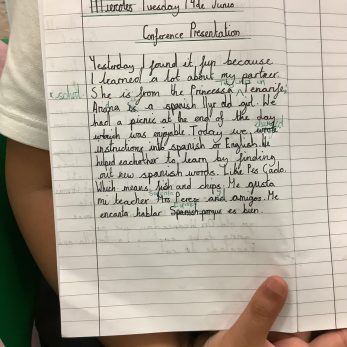 Miercoles Tuesday 14de Junio
Conference Presentation
Yesterday I found it fun because
I learned a lot about my partner.
school She is from the Princessa in Tenarife,
is a spanish 11yr old girl. We
had a picnic at the end of the day
which was enjoyable. Today we wrote
instructions into spanish or English. We
helped eachother to learn by finding
out new spanish words. Like Pes Cado.
Which means fish and chips. Me gusta
mi teacher Mrs Perez and amigos. Me
encanta hablar Spanish porque es bien.